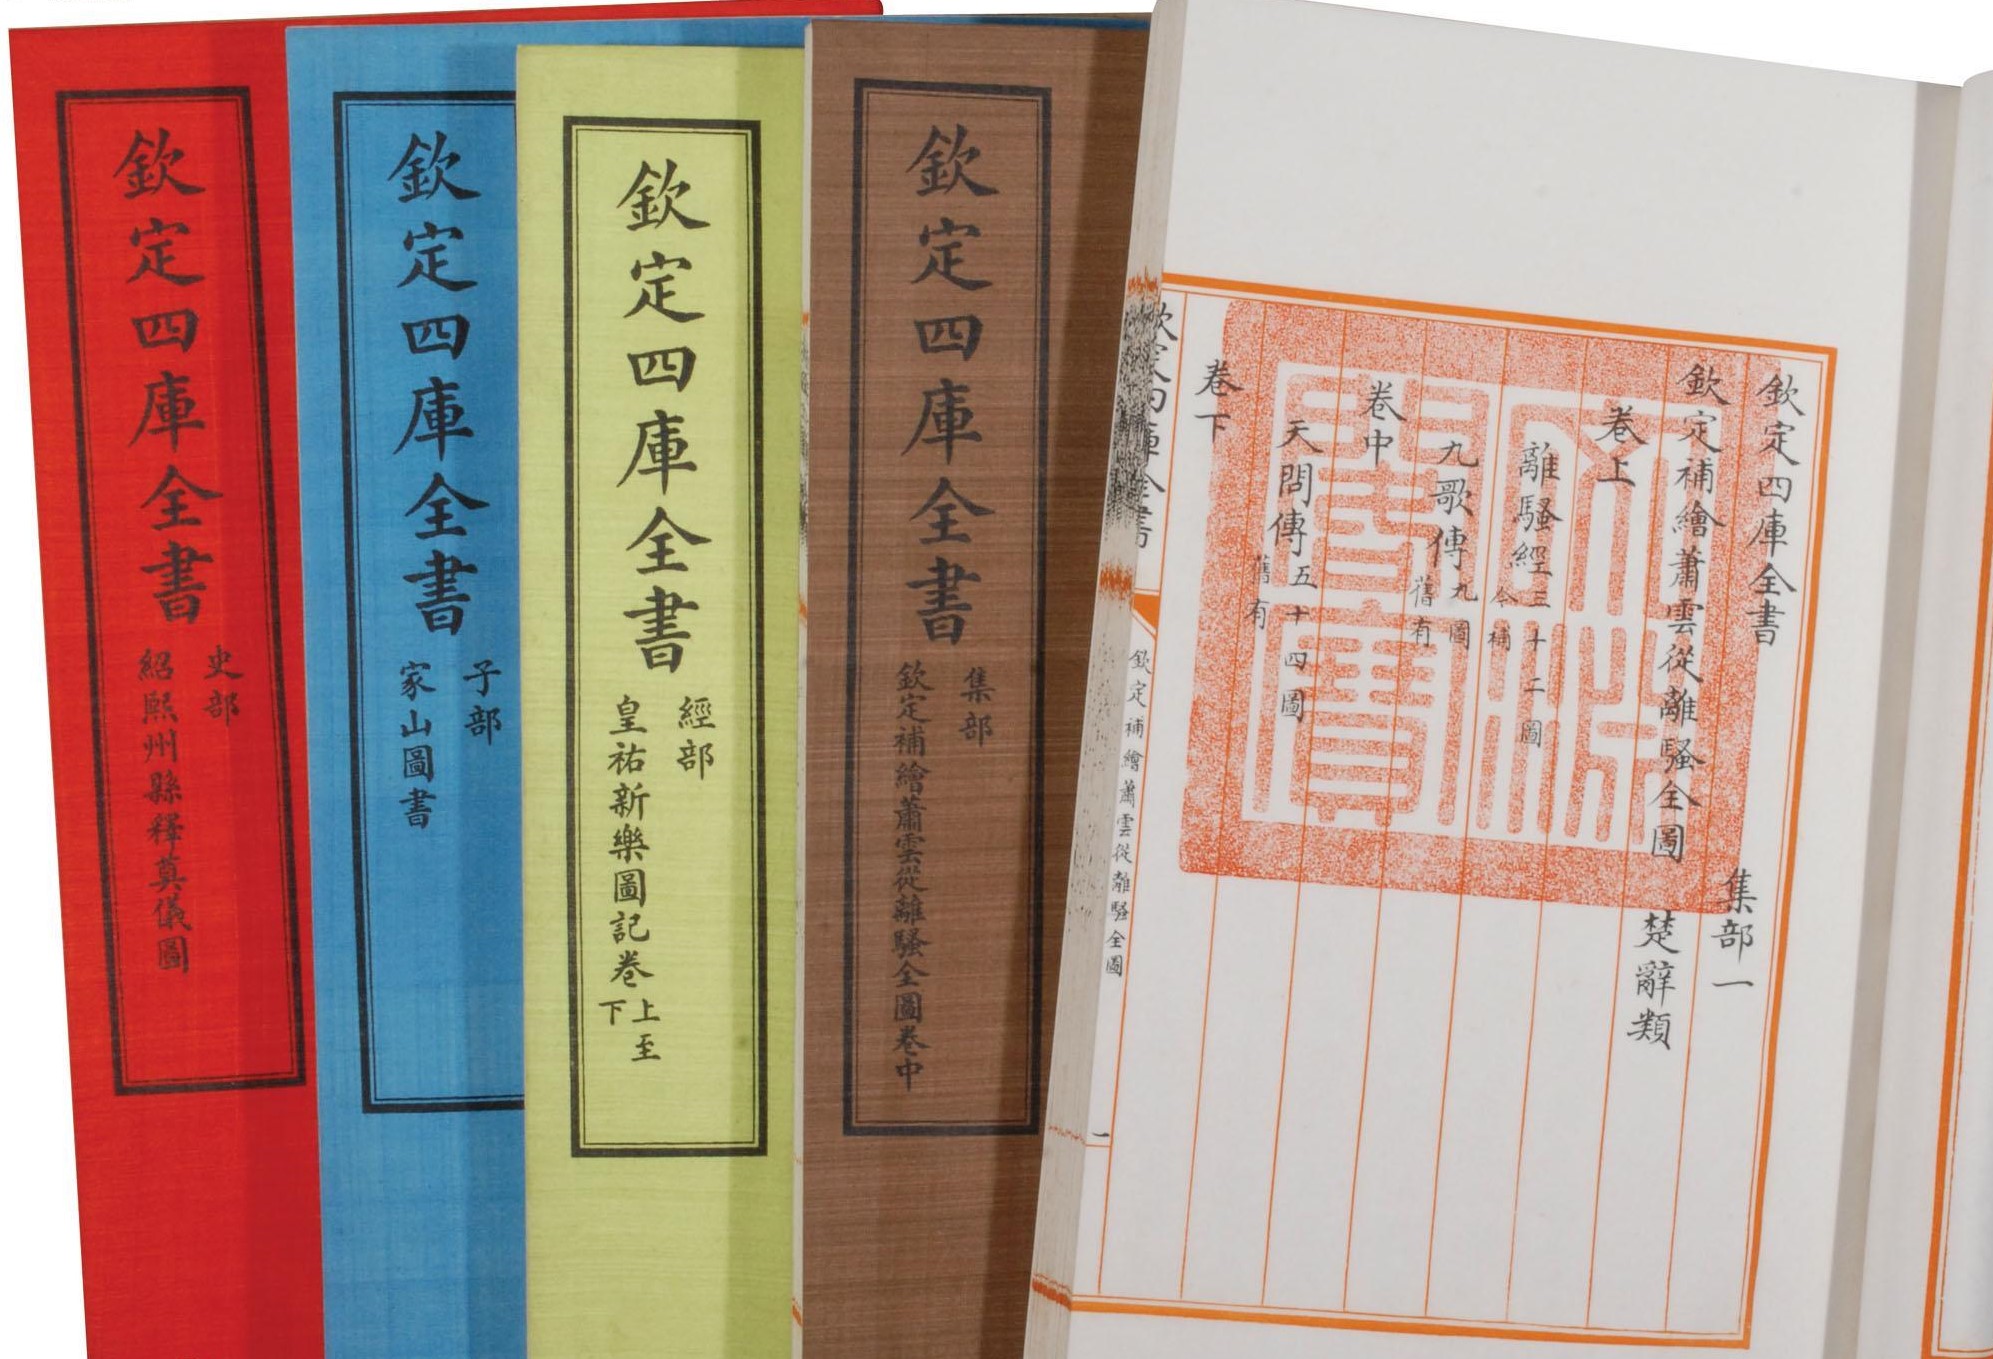 欽定四庫全書
史部
紹熙州縣釋奠儀圖
欽定四庫全書
子部
家山圖書
欽定四庫全書
經部
皇祐新樂圖記卷上至下
欽定四庫全書
集部
欽定補繪蕭雲從離騷全圖卷中
欽定四庫全書
集部一
欽定補繪蕭雲從離騷全圖
楚辭類
卷上
離騷經三十二圖今補
九歌傳九圖舊有
卷中
天問傳五十四圖舊有
卷下
欽定四庫全書
欽定補繪蕭雲從離騷全圖
一